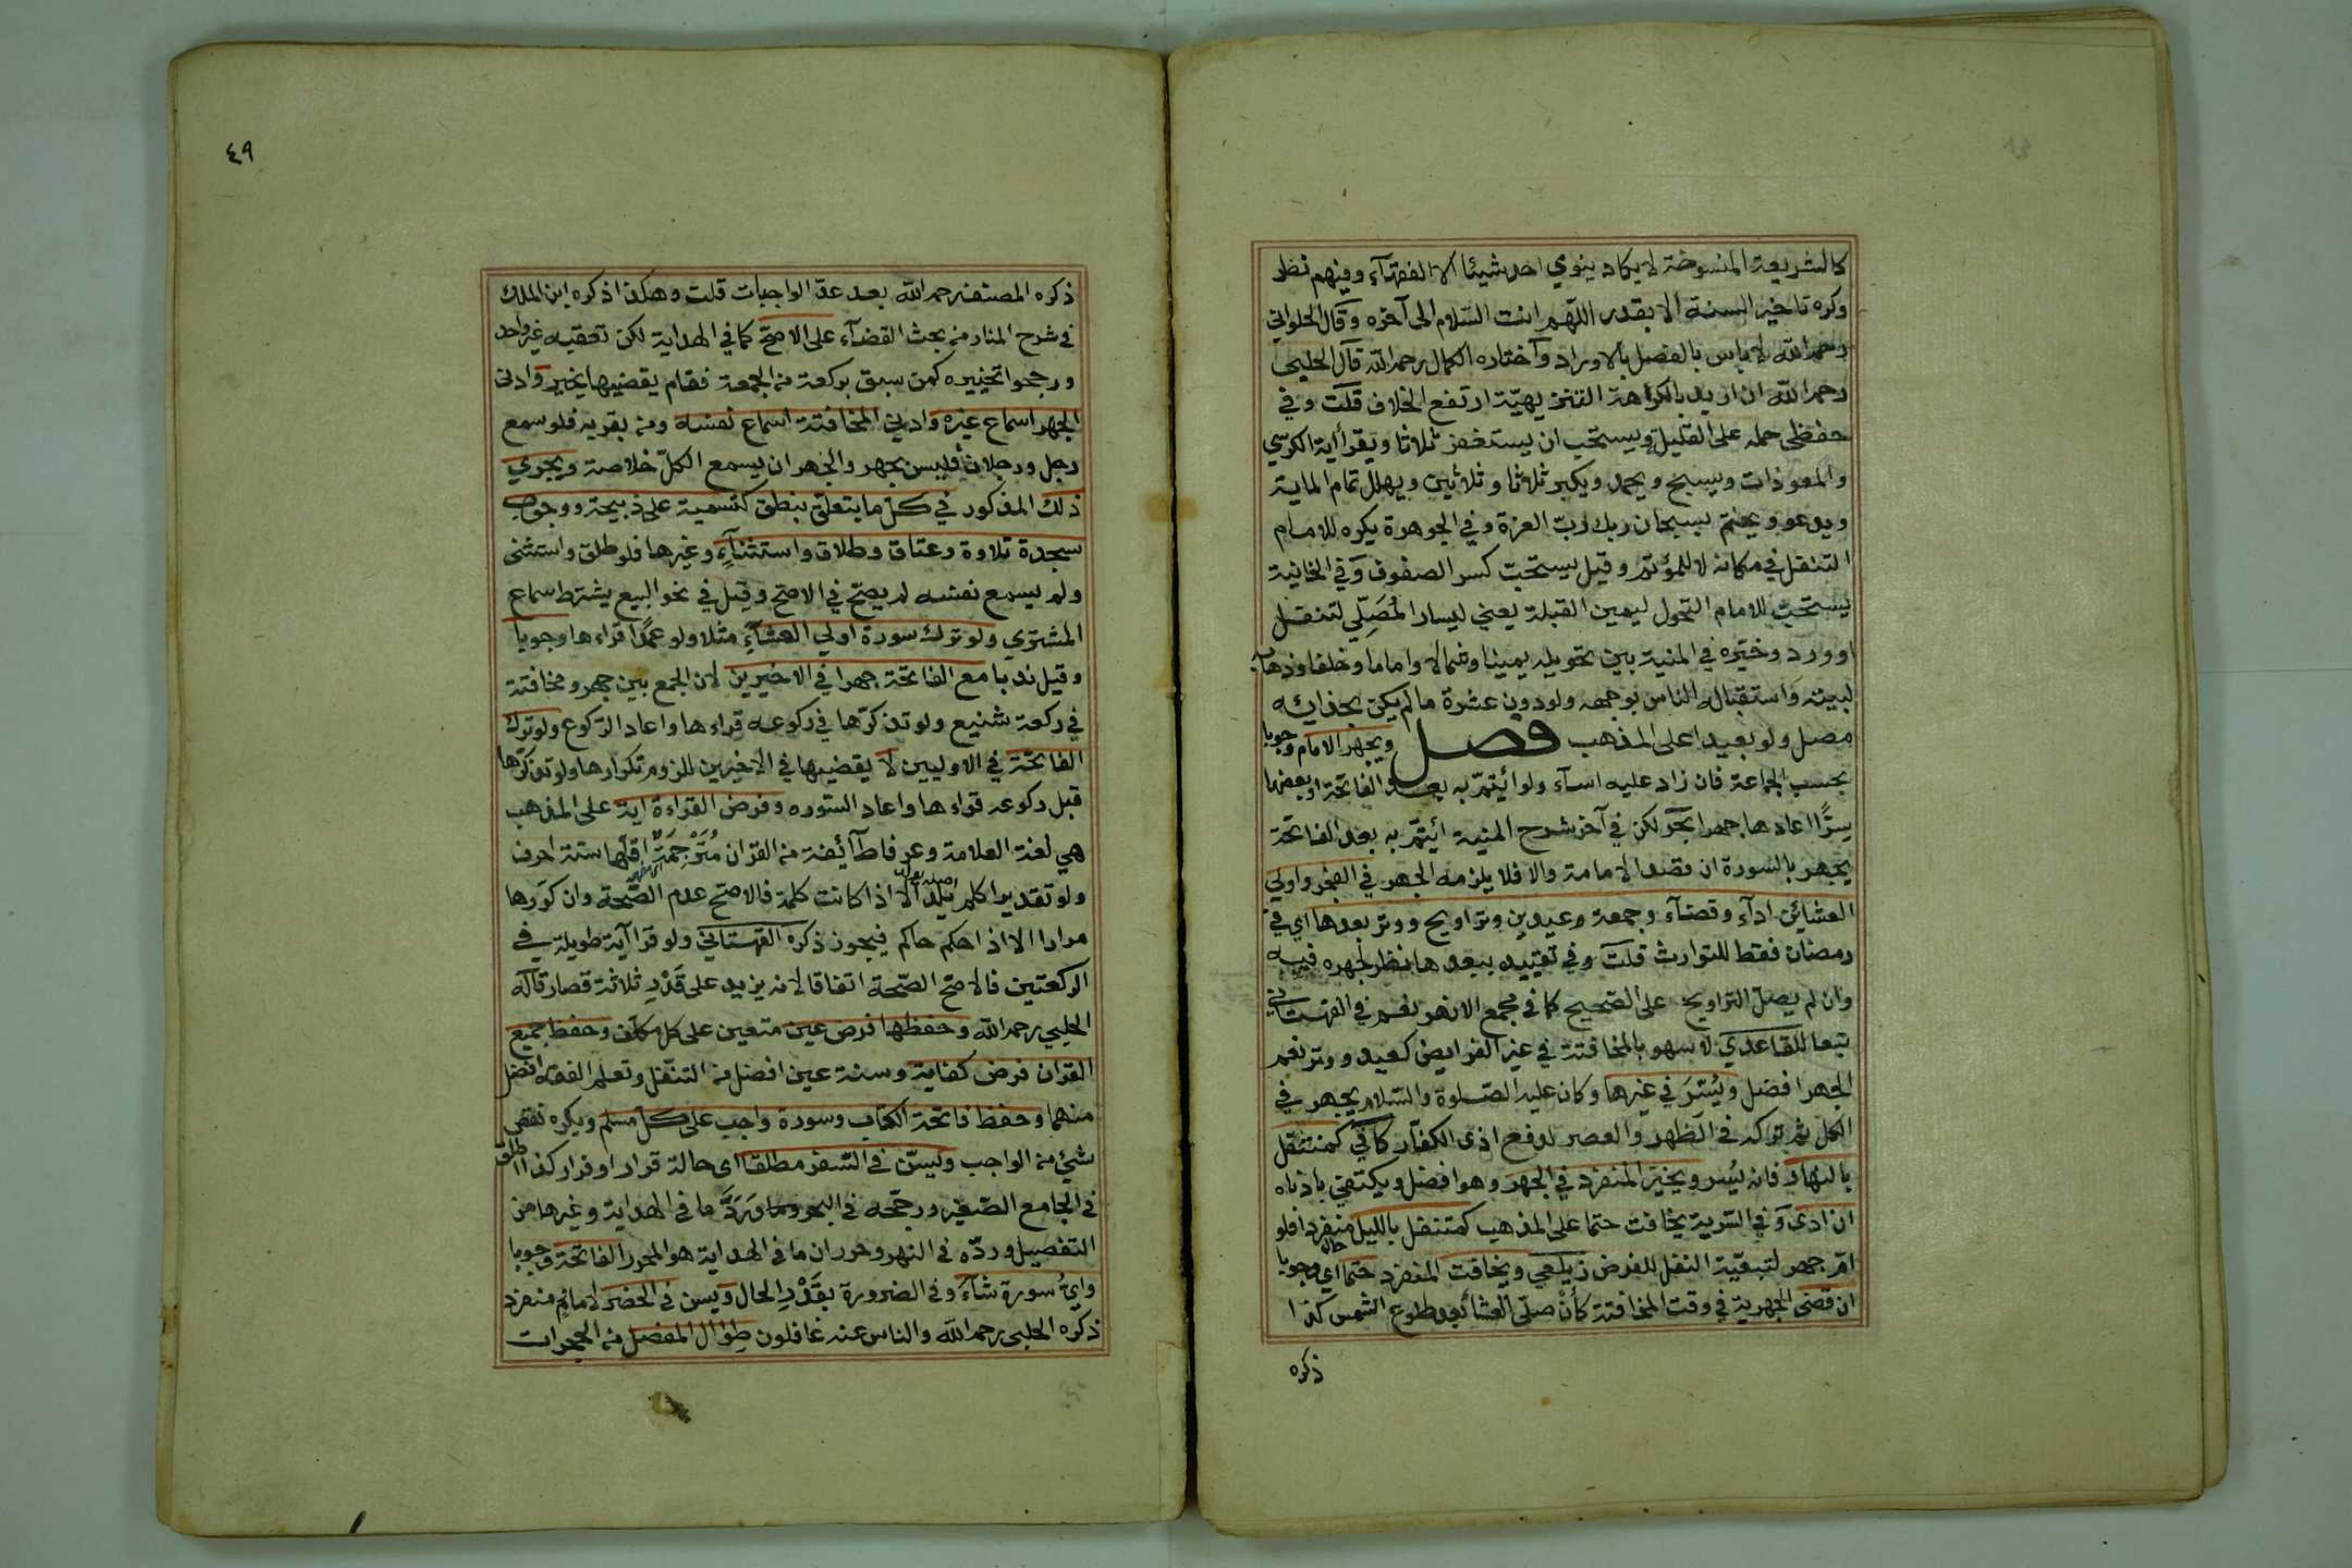 كالشريعة المنسوخة لا يكاد ينوي احد شيئا الا الفقهآء وفيهم نظر
وكره تاخير السنة الا بقدر اللهم انت السّلام الى آخره وقال الحلواني
رحمه الله لا باس بالفصل بالاوراد وآختاره الكمال رحمه الله قال الحلبي
رحمه الله ان اريد بالكراهة التنزيهيّة ارتفع الخلاف قلت وفي
حفظي حمله على القليلة ويستحب ان يستغفر ثلاثا ويقرأ اية الكرسي
والمعوذات ويسبح ويحمد ويكبر ثلاثا وثلاثين ويهلل تمام الماية
ويدعو ويختم بسبحان ربك ربّ العزة وفي الجوهرة يكره للامام
التنفل في مكانه لا للمؤتم وقيل يستحبّ كسر الصفوف وفي الخانية
يستحبّ للامام التحول ليمين القبلة يعني ليسار المُصَلّي لتنفل
او ورد وخيّره في المنية بين تحويله يمينا وشمالا واماما وخلفا وذهابه
لبيته واستقباله الناس بوجهه ولو دون عشرة ما لم يكن بحذايه
مصل ولو بعيدا على المذهب فصل ويجهر الامام وجوبا
بحسب الجماعة فان زاد عليه اسآء ولو ائيتمّ به بعد الفاتحة او بعضها
سِرًّا اعادها جهرا بحر لكن في آخر شرح المنية ائيتمّ به بعد الفاتحة
يجهر بالسورة ان قصد الامامة والا فلا يلزمه الجهر في الفجر واولي
العشائين ادآء وقضآء وجمعة وعيدين وتراويح ووتر بعدها اي في
رمضان فقط للتوارث قلت وفي تقييده ببعدها نظر لجهره فيه
وان لم يصل التراويح على الصحيح كما في مجمع الانهر نعم في القهستاني
تبعا للقاعدي لا سهو بالمخافتة في غير الفرايض كعيد ووتر نعم
الجهر افضل ويُسّرَ في غيرها وكان عليه الصّلوة والسّلام يجهر في
الكل ثم تركه في الظهر والعصر لدفع اذى الكفّار كافي كمتنفل
بالنهار فانه يُسر ويخير المنفرد في الجهر وهو افضل ويكتفي بادناه
ان ادى وفي السّرية يخافت حتما على المذهب كمتنفل بالليل منفردا فلو
امّ جهر لتبعيّة النفل للفرض زيلعي ويخافت المنفرد حتما اي وجوبا
ان قضى الجهرية في وقت المخافتة كأن صلّى العشا بعد طلوع الشمس كذا
ذكره
٤٩
ذكره المصنف رحمه الله بعد عدّ الواجبات قلت وهكذا ذكره ابن الملك
في شرح المنار من بحث القضآء على الاصحّ كما في الهداية لكن تعقبه غير واحد
ورجحوا تخييره كمن سبق بركعة من الجمعة فقام يقضيها يخير وادنى
الجهر اسماع غيره وادني المخافتة اسماع نفسه ومن بقربه فلو سمع
رجل ورجلان فليس بجهر والجهر ان يسمع الكلّ خلاصة ويجري
ذلك المذكور في كل ما يتعلق بنطق كتسمية على ذبيحة ووجوب
سجدة تلاوة وعتاق وطلاق واستثنآءٍ وغيرها فلو طلق واستثنى
ولم يسمع نفسه لم يصحّ في الاصحّ وقيل في نحو البيع يشترط سماع
المشتري ولو ترك سورة اولي العشآء مثلا ولو عمدا قراءها وجوبا
وقيل ندبا مع الفاتحة جهرا في الاخيرين لان الجمع بين جهر ومخافتة
في ركعة شنيع ولو تذكّرها في ركوعه قراءها واعاد الرّكوع ولو ترك
الفاتحة في الاوليين لا يقضيها في الاخيرين للزوم تكرارها ولو تذكّرها
قبل ركوعه قراءها واعاد السّوره وفرض القراءة اية على المذهب
هي لغة العلامة وعرفا طآئفة من القران مُتَرْجَمَةٌ اقلّها ستة احرف
ولو تقديرا كلم يلد الا اذا كانت كلمة فالاصح عدم الصّحة وان كرّرها
مرارا الا اذا حكم حاكم فيجوز ذكره القهستاني ولو قرا آية طويلة في
الركعتين فالاصحّ الصّحة اتفاقا لانه يزيد على قَدْرِ ثلاثة قصار قاله
الحلبي رحمه الله وحفظها فرض عين متعين على كل مكلّف وحفظ جميع
القران فرض كفاية وسنة عين افضل من التنفّل وتعلم الفقه افضل
منهما وحفظ فاتحة الكتاب وسورة واجب على كلّ مسلم ويكره نقص
شيئ من الواجب ويسنّ في السّفر مطلقا اى حالة قرار او فرار كذا اطلق
في الجامع الصّغير ورجّحه في البحر وَرَدَّ ما في الهداية وغيرها من
التفصيل وردّه في النهر وحرر ان ما في الهداية هو المحرر الفاتحة وجوبا
وايُّ سورة شآء وفي الضرورة بقَدْرِ الحال ويسن في الحضر لامامٍ ومنفرد
ذكره الحلبي رحمه الله والناس عنه غافلون طِوَال المفصّل من الحجرات